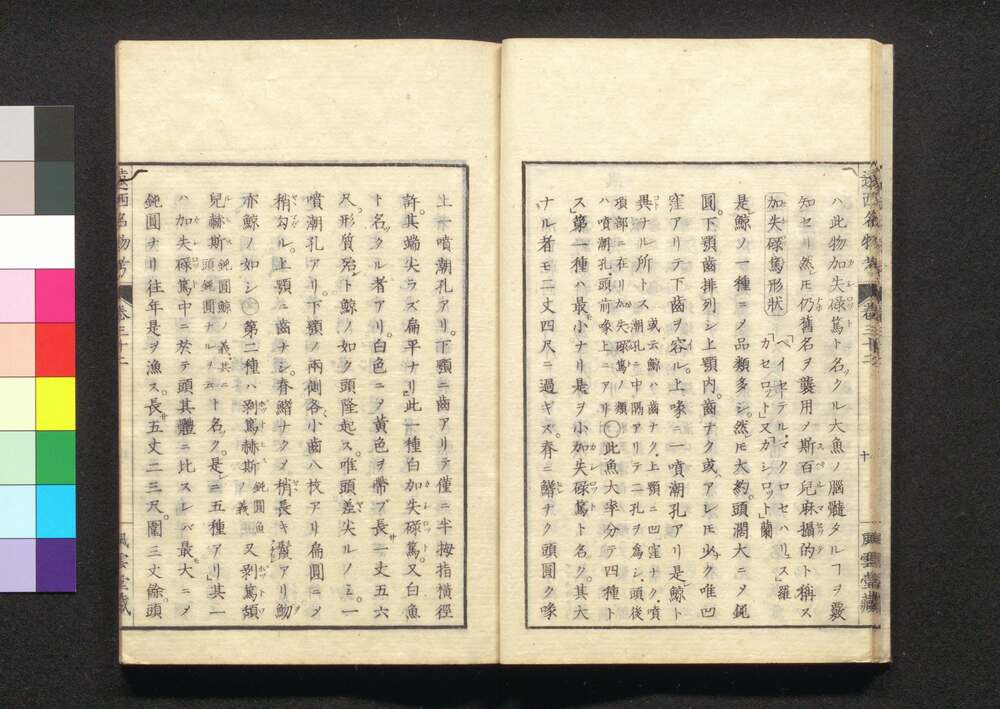 ハ此物加失碌篤ト名クル大魚ノ腦髓タルヿヲ覈
知セリ然ﾄﾓ仍舊名ヲ襲用ノ斯百兒麻攝的ト稱ス
加失碌篤形狀
「ペイセテル、マクロセハリュス」羅
「カセロット」又「カシロット」蘭
是鯨ノ一種ニメ品類多シ。然ﾄﾓ大約。頭濶大ニメ鈍
圓。下顎齒排列シ上顎内。齒ナク或ハアレﾄﾓ少ク唯凹
窪アリテ下齒ヲ容ル。上喙ニ一噴潮孔アリ是鯨ト
異ナル所トス
或云鯨ハ齒ナク。上顎ニ凹窪ナク。噴
潮孔ニ中隔アリテ二孔ヲ爲シ、頭後
項部ニ在リ加失碌篤ノ類
ハ噴潮孔、頭前喙上ニアリ
此魚大率分テ四種ト
ス第一種ハ最小ナリ是ヲ小加失碌篤ト名ク。其大
ナル者モ二丈四尺ニ過ギス。脊ニ鰭ナク頭圓ク喙
遠西名物考
卷三十二
十
風雲堂藏
上一噴潮孔アリ。下顎ニ齒アリテ僅ニ半拇指橫徑
許其端尖ラズ扁平ナリ此一種白加失碌篤。又白魚
ト名クル者アリ。白色ニメ黄色ヲ帶ブ長一丈五六
尺。形質殆ト鯨ノ如ク頭隆起ス。唯頭差尖ルノミ。一
噴潮孔アリ。下顎ノ兩側各、小齒八枚アリ扁圓ニメ
稍勾ル。上顎ニ齒ナシ。脊鰭ナクメ梢長キ鬣アリ魩
亦鯨ノ如シ
第二種ハ剥篤赫斯
鈍圓魚
ノ義
又剥篤頷
兒赫斯
鈍圓鯨ノ義、其
頭鈍圓ナルヲ云
ト名ク。是ニ五種アリ」其一
ハ加失碌篤中ニ於テ頭其體ニ比スレバ最大ニメ
鈍圓ナリ往年是ヲ漁ス。長五丈二三尺。圍三丈餘。頭
遠西名物考
卷三十二
風雲堂藏